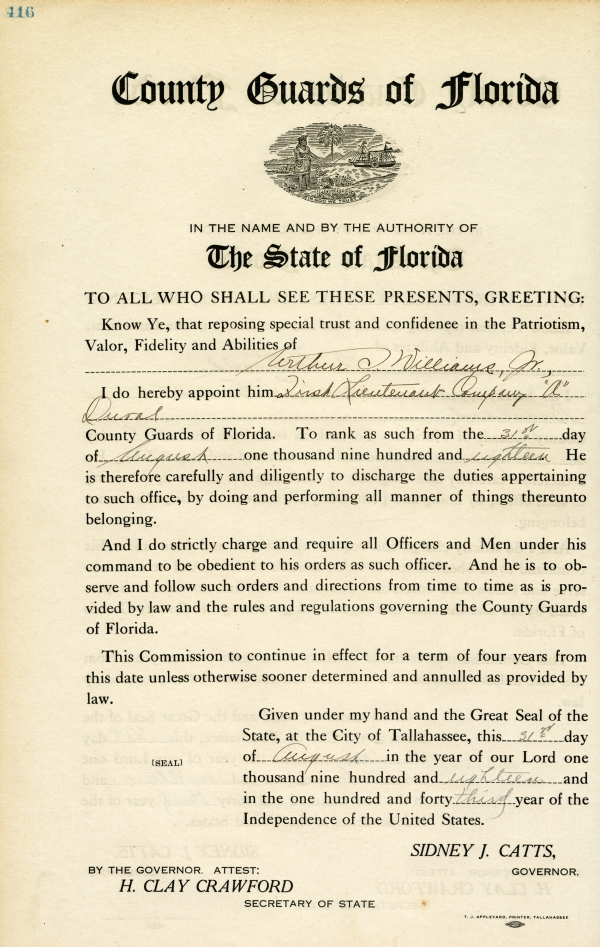 416
County Guards of Florida
IN GOD WE TRUST
IN THE NAME AND BY THE AUTHORITY OF
The State of Florida
TO ALL WHO SHALL SEE THESE PRESENTS, GREETING:
Know Ye, that reposing special trust and confidenee in the Patriotism,
Valor, Fidelity and Abilities of
Arthur T Williams, Jr.,
I do hereby appoint him First Lieutenant Company "A"
Duval
County Guards of Florida. To rank as such from the 31st day
of August one thousand nine hundred and eighteen He
is therefore carefully and diligently to discharge the duties appertaining
to such office, by doing and performing all manner of things thereunto
belonging.
And I do strictly charge and require all Officers and Men under his
command to be obedient to his orders as such officer. And he is to ob-
serve and follow such orders and directions from time to time as is pro-
vided by law and the rules and regulations governing the County Guards
of Florida.
This Commission to continue in effect for a term of four years from
this date unless otherwise sooner determined and annulled as provided by
law.
Given under my hand and the Great Seal of the
State, at the City of Tallahassee, this 31st day
[SEAL] of August in the year of our Lord one
thousand nine hundred and eighteen and
in the one hundred and forty third year of the
Independence of the United States.
SIDNEY J. CATTS,
BY THE GOVERNOR. ATTEST: GOVERNOR.
H. CLAY CRAWFORD
SECRETARY OF STATE
T. J. APPLEYARD, PRINTER, TALLAHASSEE